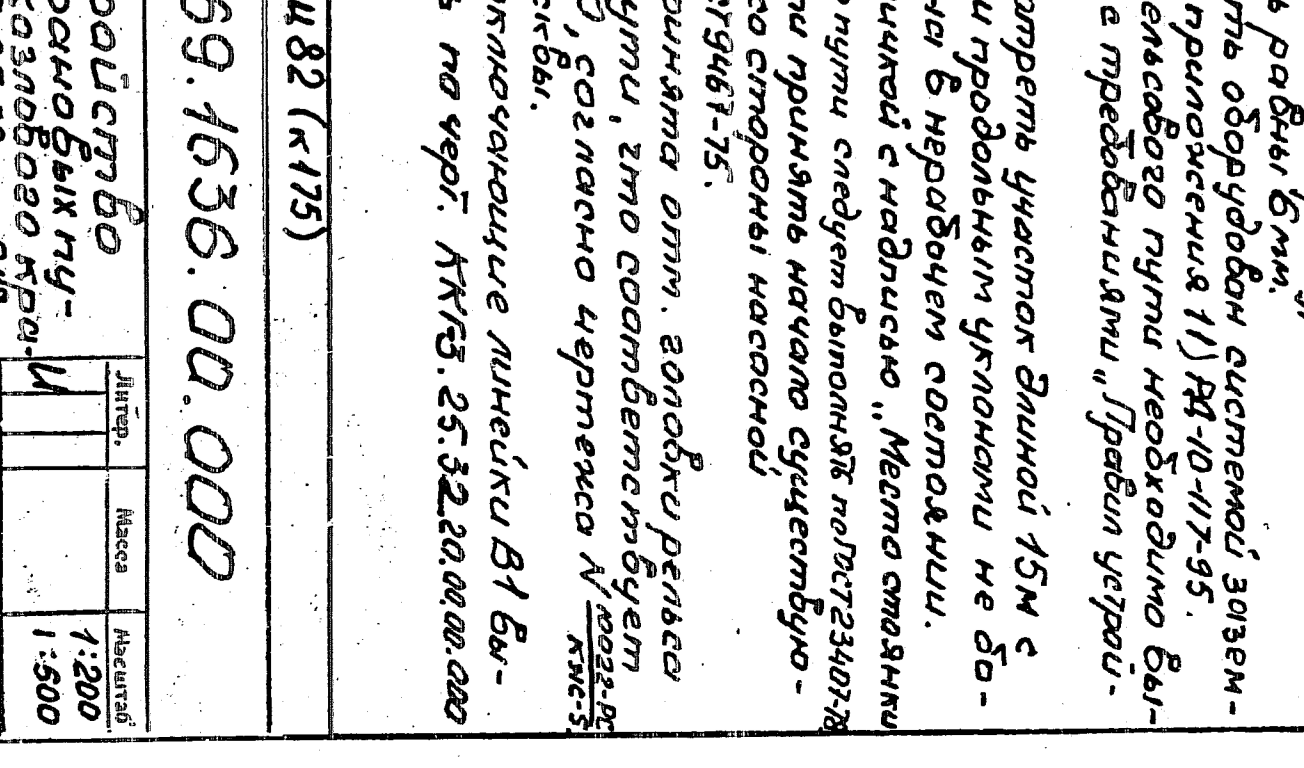 ь равны 6мм.
ть оборудован системой зазем-
приложения 11) РД-10-117-95.
ельсового пути необходимо вы-
с требованиями „Правил устрой-
отреть участок длиной 15м с
и продольным уклонами не бо-
ны в нерабочем состоянии.
ничкой с надписью „Место стоянки
пути следует выполнять по ГОСТ 23407-78
ти принять начало существую-
со стороны насосной
СТ9467-75.
ринята отм. головки рельса
ути, что соответствует
, согласно чертежа N 10022-РС
КНС-5.
сквы.
ключающие линейки В1 вы-
ь по черт. ККГЗ.25.32.20.00.00.000
и 82 (к175)
69.1636.00.000
ройство
рановых пу-
козлового кра-
Литер.
Масса
Масштаб
И
1:200
1:500